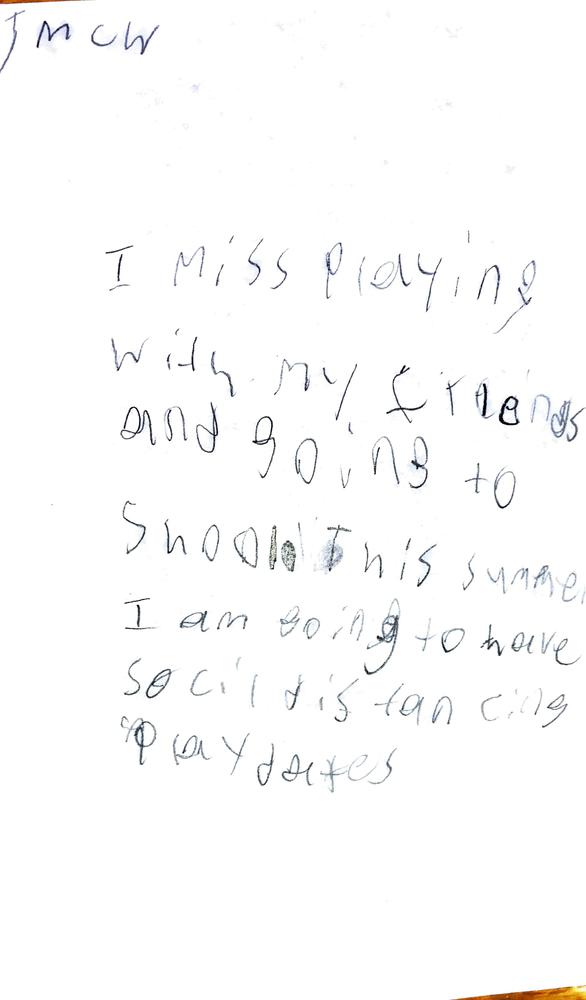 JMCW
I miss playing
with my friends
and going to
Shool This summer
I am going to have
socil distancing
playdates